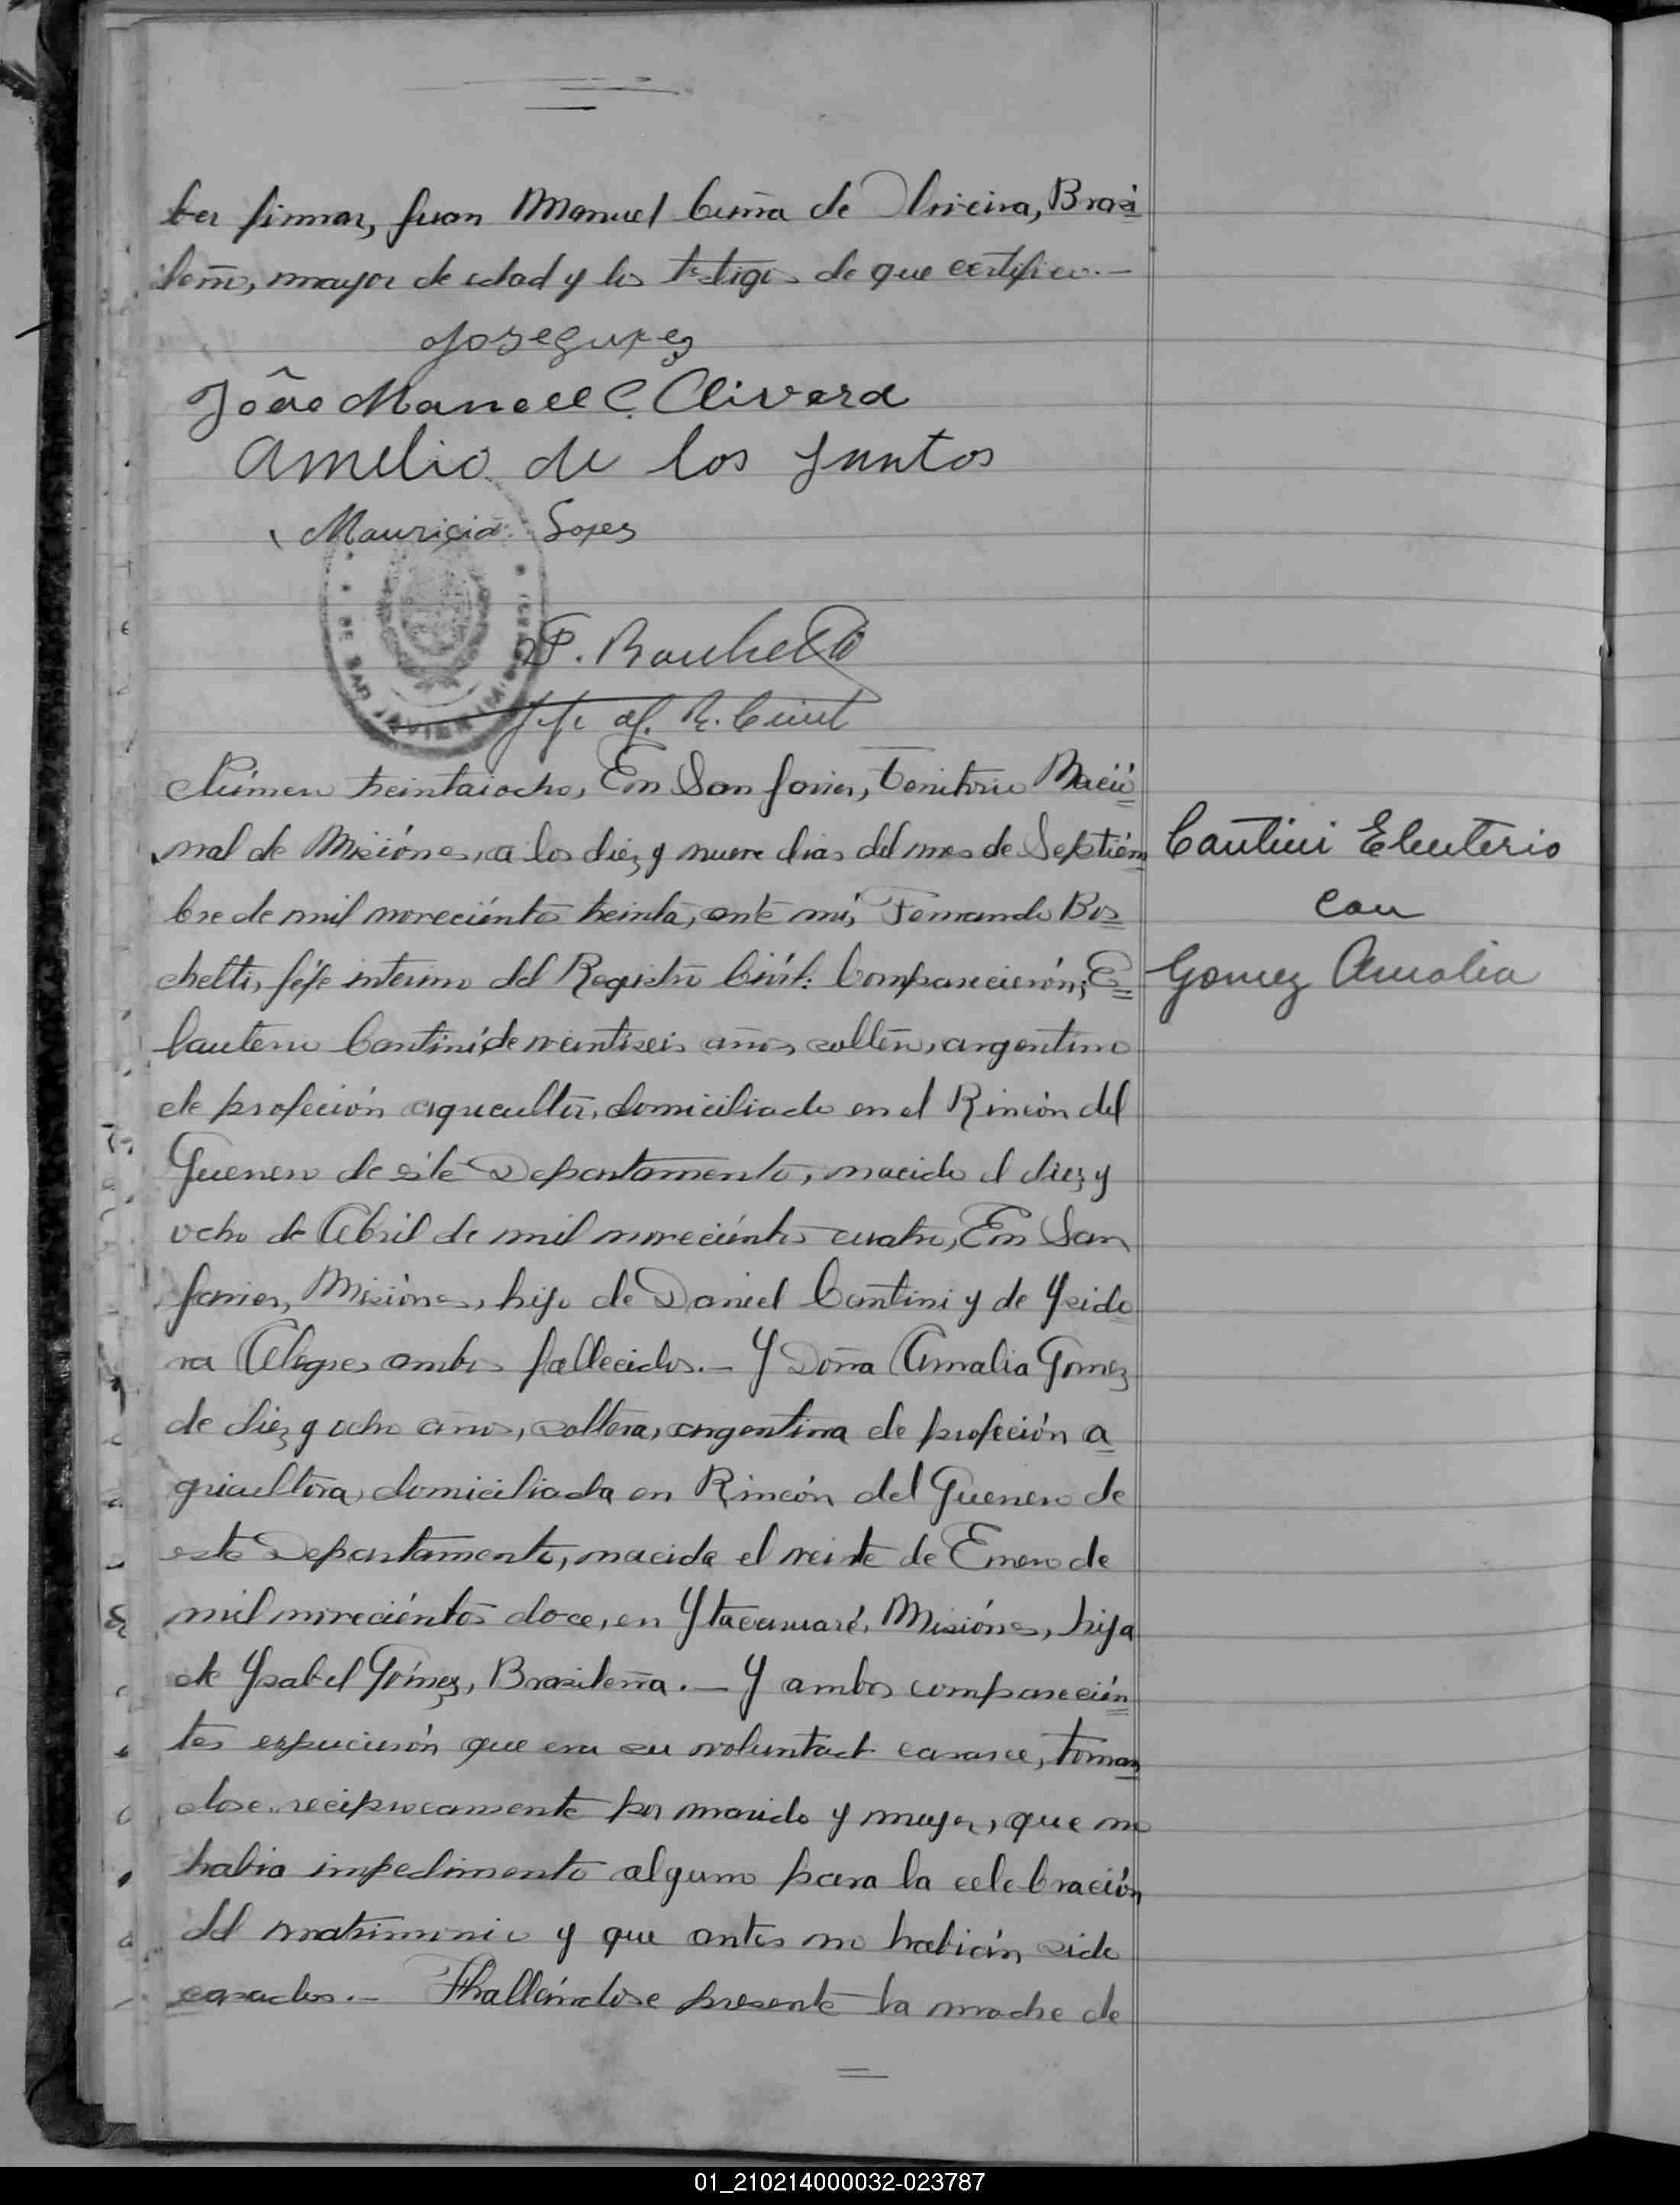 ber firmar, Juan Manuel Cuña de Oliveira, Brasi
leño, mayor de edad y los testigos de que certifico.—
João Manoell C. Olivera
Amelio de los Santos
Mauricio Lopes
DE SAN JAVIER
F. Boschetti
Jefe del R. Civil
Número treintaiocho, En San Javier, Territorio Nació
nal de Misiónes, a los diez y nueve dias del mes de Septiém
bre de mil noveciéntos treinta, ante mí, Fernando Bos
chetti, Jéfe interino del Registro Civíl: Compareciéron; E
lauterio Cantini, de veintiseis años, soltero, argentino
de profeción agricultor, domiciliado en el Rincón del
Guerrero de éste Departamento, nacido el diez y
ocho de Abril de mil noveciéntos cuatro, En San
Javier, Misiónes, hijo de Daniel Cantini y de Ysido
ra Alegre, ambos fallecidos.— Y Doña Amalia Gomez
de diez y ocho años, soltera, argentina de profeción a
gricultora, domiciliada en Rincón del Guerrero de
este Departamento, nacida el veinte de Enero de
mil noveciéntos doce, en Ytacaruaré, Misiónes, hija
de Ysabel Gómez, Brasileña.— Y ambos compareción
tes espucierón que era su voluntad casarce, toman
dose reciprocamente por marido y mujer, que no
habia impedimento alguno para la celebración
del matrimonio y que antes no habián sido
casados.— Hallándose presente la madre de
Cantini Eleuterio
con
Gomez Amalia
01_210214000032-023787